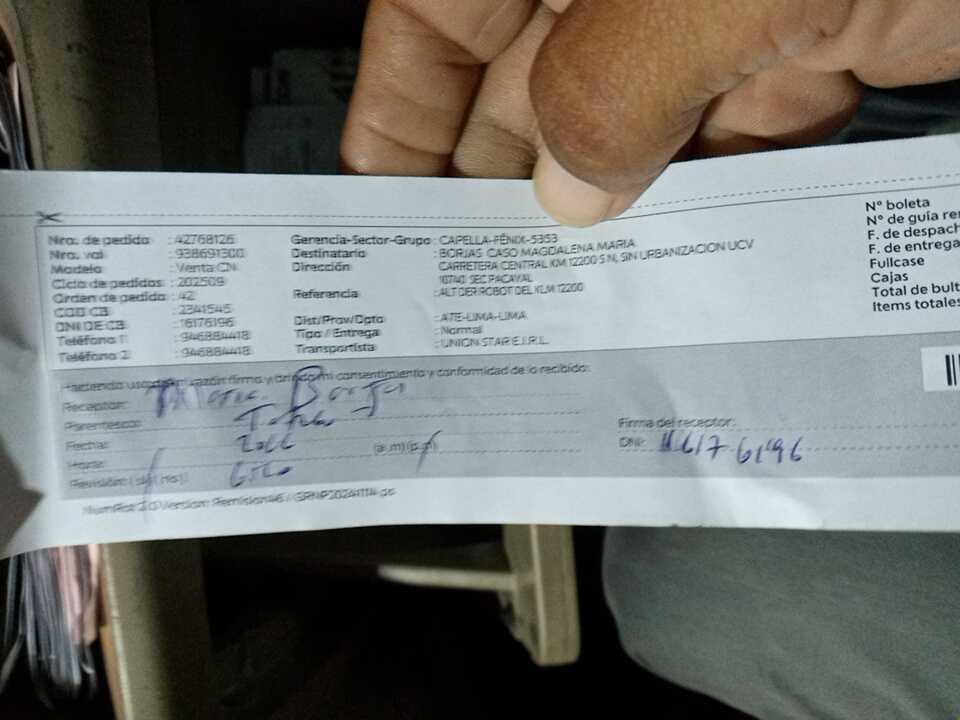 Nro. de pedido : 42768126
Nro. val : 938691300
Modelo : Venta CN
Ciclo de pedidos : 202509
Orden de pedido : 42
COD CB : 2341545
DNI DE CB : 16176196
Teléfono 1 : 946884418
Teléfono 2 : 946884418
Gerencia-Sector-Grupo : CAPELLA-FÉNIX-5353
Destinatario : BORJAS CASO MAGDALENA MARIA
Dirección : CARRETERA CENTRAL KM 12200 S N, SIN URBANIZACION UCV
10740 SEC PACAYAL
Referencia : ALT DER ROBOT DEL KLM 12200
Dist/Prov/Dpto : ATE-LIMA-LIMA
Tipo / Entrega : Normal
Transportista : UNION STAR E.I.R.L.
N° boleta
N° de guía re
F. de despach
F. de entrega
Fullcase
Cajas
Total de bult
Items totales
Haciendo uso de mi razón firmo y brindo mi consentimiento y conformidad de lo recibido:
Receptor: Maria Borja
Parentesco:
Fecha:
(a.m) (p.m)
Hora:
Revisión: (si) (no)
Firma del receptor:
DNI: 16176196